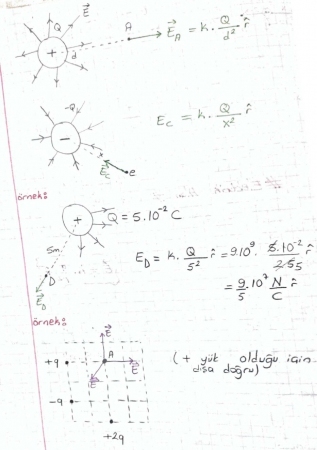 Q E⃗
+ d A E⃗_A = k. Q/d² r̂
-Q
- E_C = k. Q/x² r̂
E⃗_c e
örnek:
+ Q = 5.10⁻² C
5m.
D E_D = k. Q/5² r̂ = 9.10⁹. 5.10⁻²/25 5 r̂
E⃗_D = 9/5 .10⁷ N/C r̂
örnek:
E⃗
+q A E⃗ (+ yük olduğu için
E⃗ dışa doğru)
-q
+2q